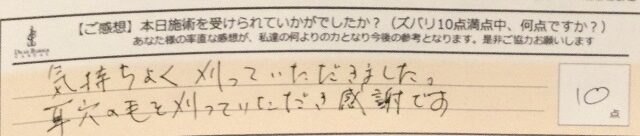 【ご感想】本日施術を受けられていかがでしたか？（ズバリ10点満点中、何点ですか？）
あなた様の率直な感想が、私達の何よりの力となり今後の参考となります。是非ご協力お願いします
気持ちよく刈っていただきました。
耳穴の毛も刈っていただき感謝です
10
点